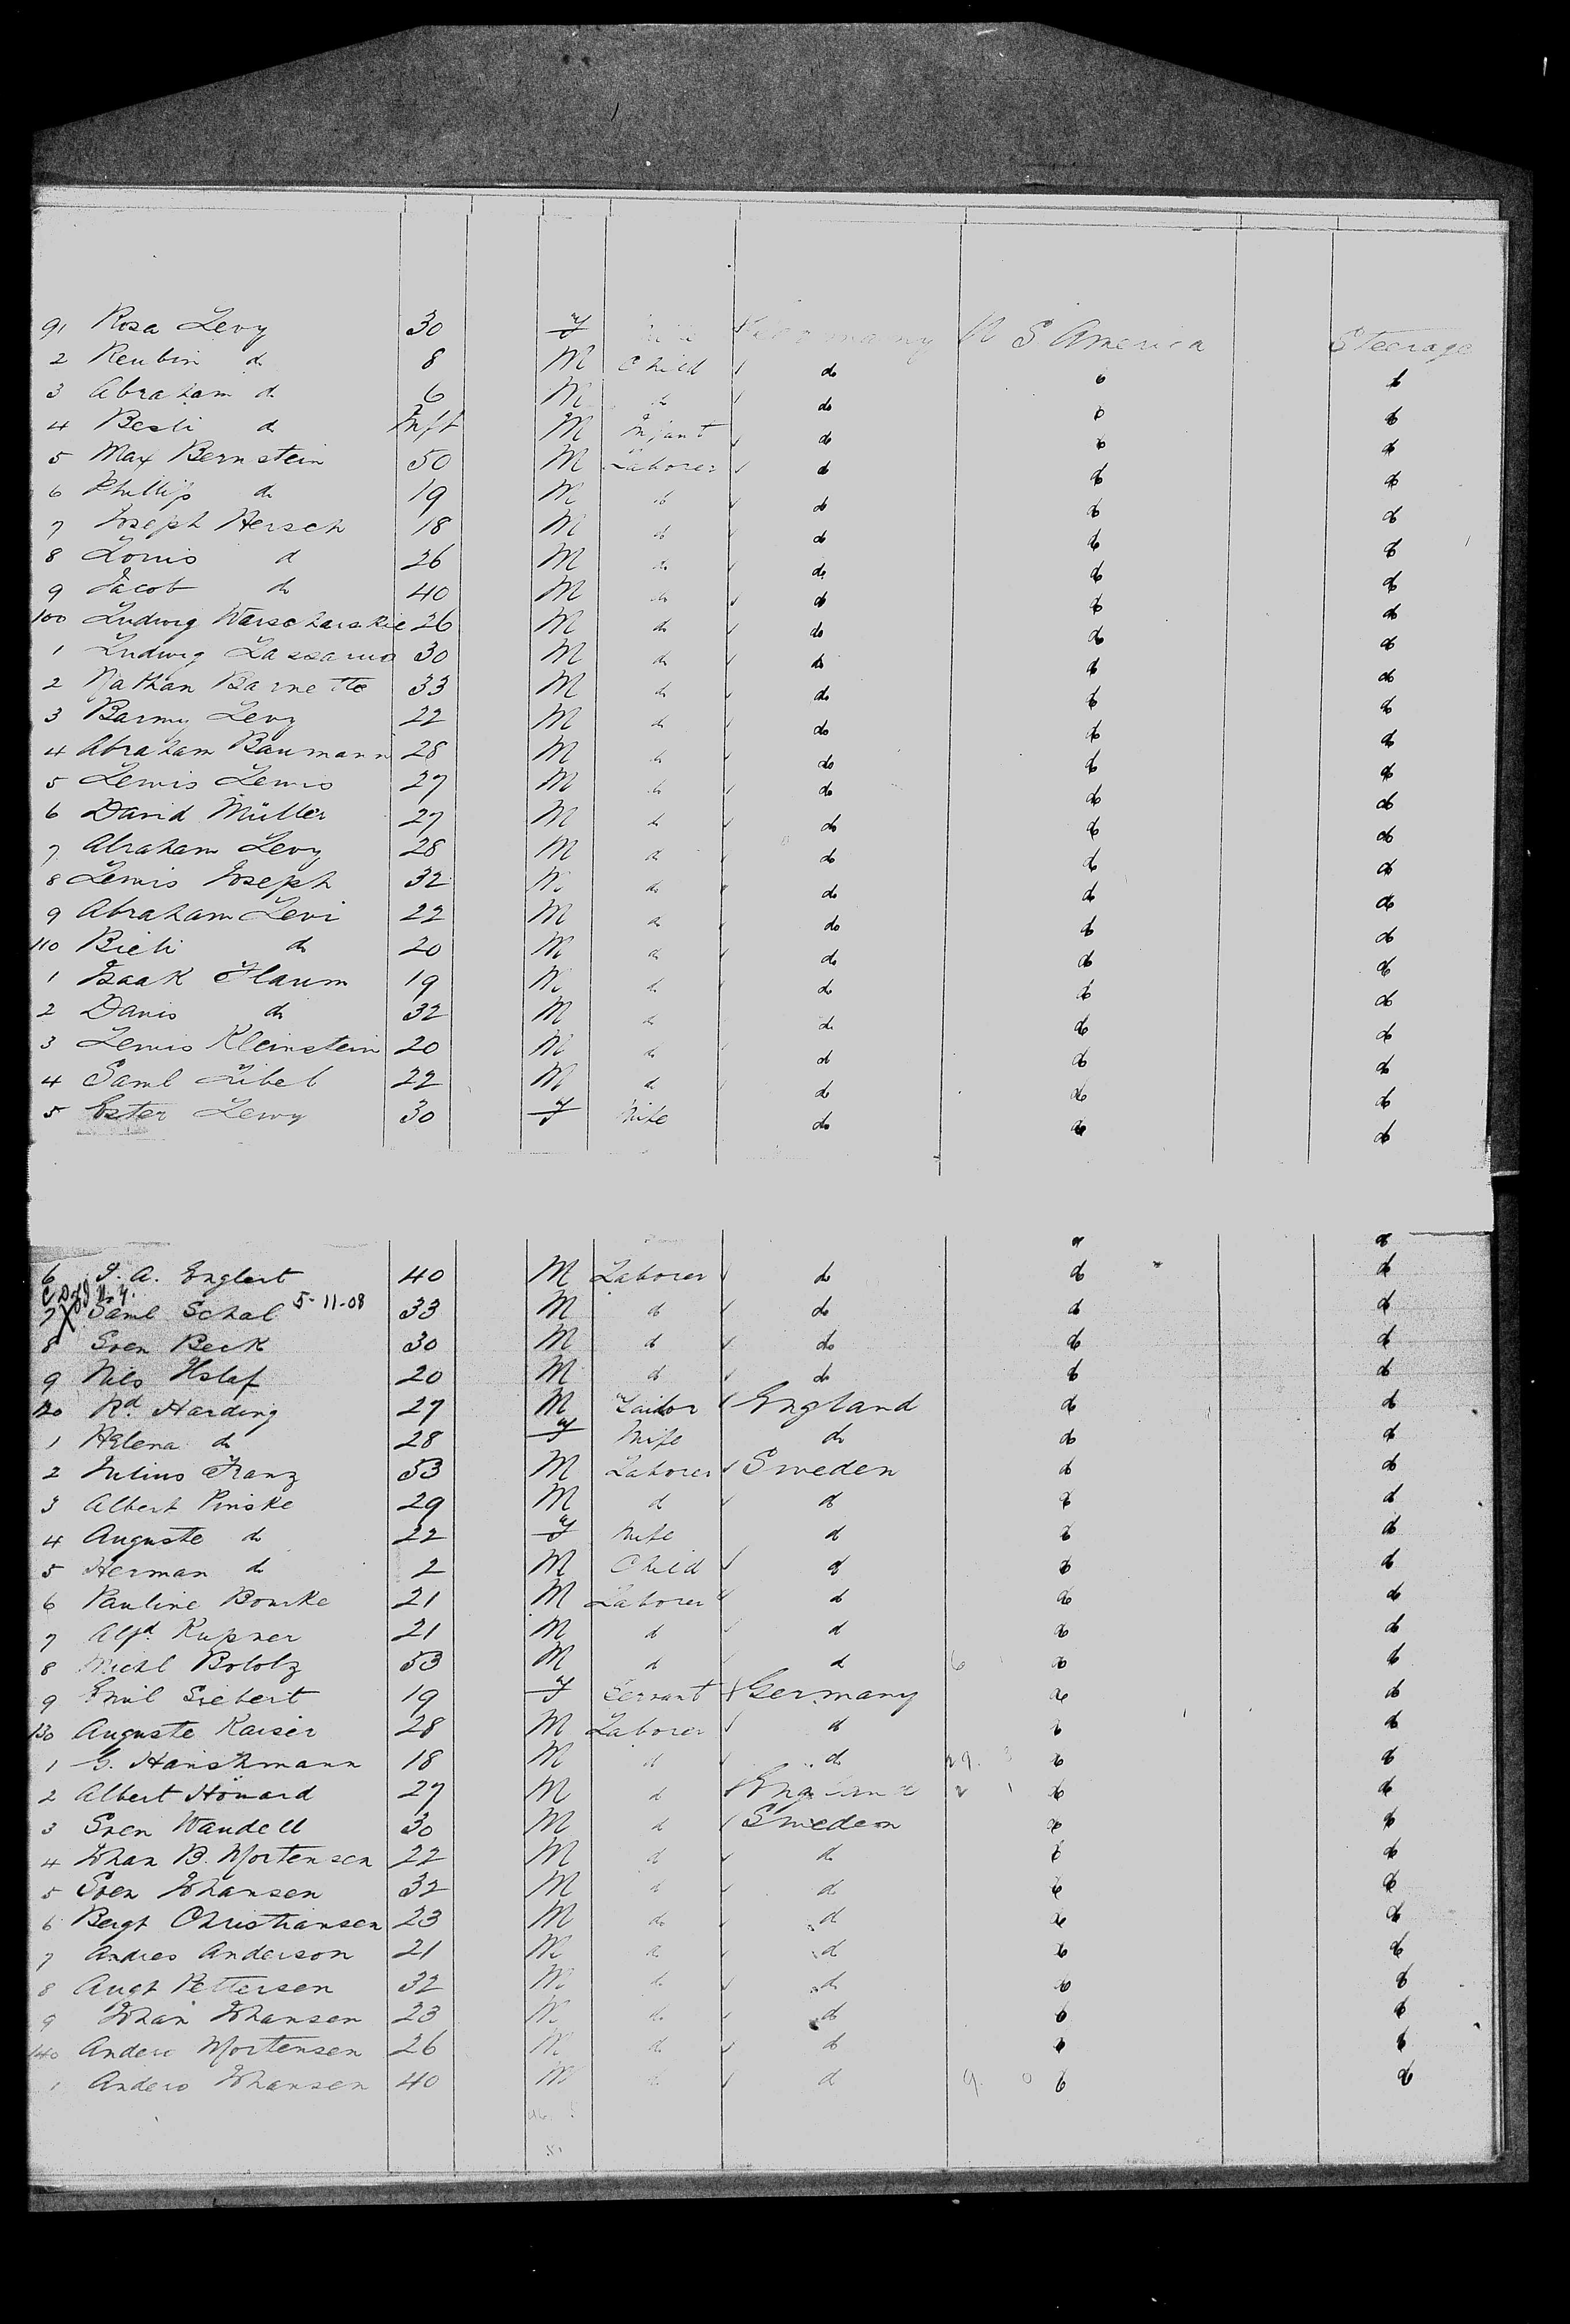 91 Rosa Levy 30 f Germany U S America Steerage
2 Reubin do 8 M Child do do do
3 Abraham do 6 M do do do do
4 Besli do Inft M Infant do do do
5 Max Bernstein 50 M Laborer do do do
6 Phillip do 19 M do do do do
7 Joseph Hersch 18 M do do do do
8 Louis do 26 M do do do do
9 Jacob do 40 M do do do do
100 Ludwig Warscharskie 26 M do do do do
1 Ludwig Lassarus 30 M do do do do
2 Nathan Barnette 33 M do do do do
3 Barmy Levy 22 M do do do do
4 Abraham Baumann 28 M do do do do
5 Lewis Lewis 27 M do do do do
6 David Müller 27 M do do do do
7 Abraham Levy 28 M do do do do
8 Lewis Joseph 32 M do do do do
9 Abraham Levi 22 M do do do do
110 Bieli do 20 M do do do do
1 Isaak Flaum 19 M do do do do
2 Davis do 32 M do do do do
3 Lewis Kleinstein 20 M do do do do
4 Saml Libel 22 M do do do do
5 Ester Lewy 30 f Wife do do do
do do
6 J. A. Englert 40 M Laborer do do do
5-11-08
7 Saml Schal 33 M do do do do
8 Sven Beck 30 M do do do do
9 Nils 20 M do do do do
120 Rd Harding 27 M Tailor England do do
1 Helena do 28 f Wife do do do
2 Julius Franz 53 M Laborer Sweden do do
3 Albert Pinske 29 M do do do do
4 Auguste do 22 f Wife do do do
5 Herman do 2 M Child do do do
6 Pauline Bourke 21 M Laborer do do do
7 Alfd Kupner 21 M do do do do
8 Michl Bololz 53 M do do do do
9 Emil Siebert 19 f Servant Germany do do
130 Auguste Kaiser 28 M Laborer do do do
1 G. Hanskmann 18 M do do do do
2 Albert Howard 27 M do England do do
3 Sven Wandell 30 M do Sweden do do
4 Johan B. Mortensen 22 M do do do do
5 Sven Johansen 32 M do do do do
6 Bergt Christiansen 23 M do do do do
7 Andres Anderson 21 M do do do do
8 Augt Pettersen 32 M do do do do
9 Johan Johansen 23 M do do do do
140 Anders Mortensen 26 M do do do do
1 Anders Johansen 40 M do do do do